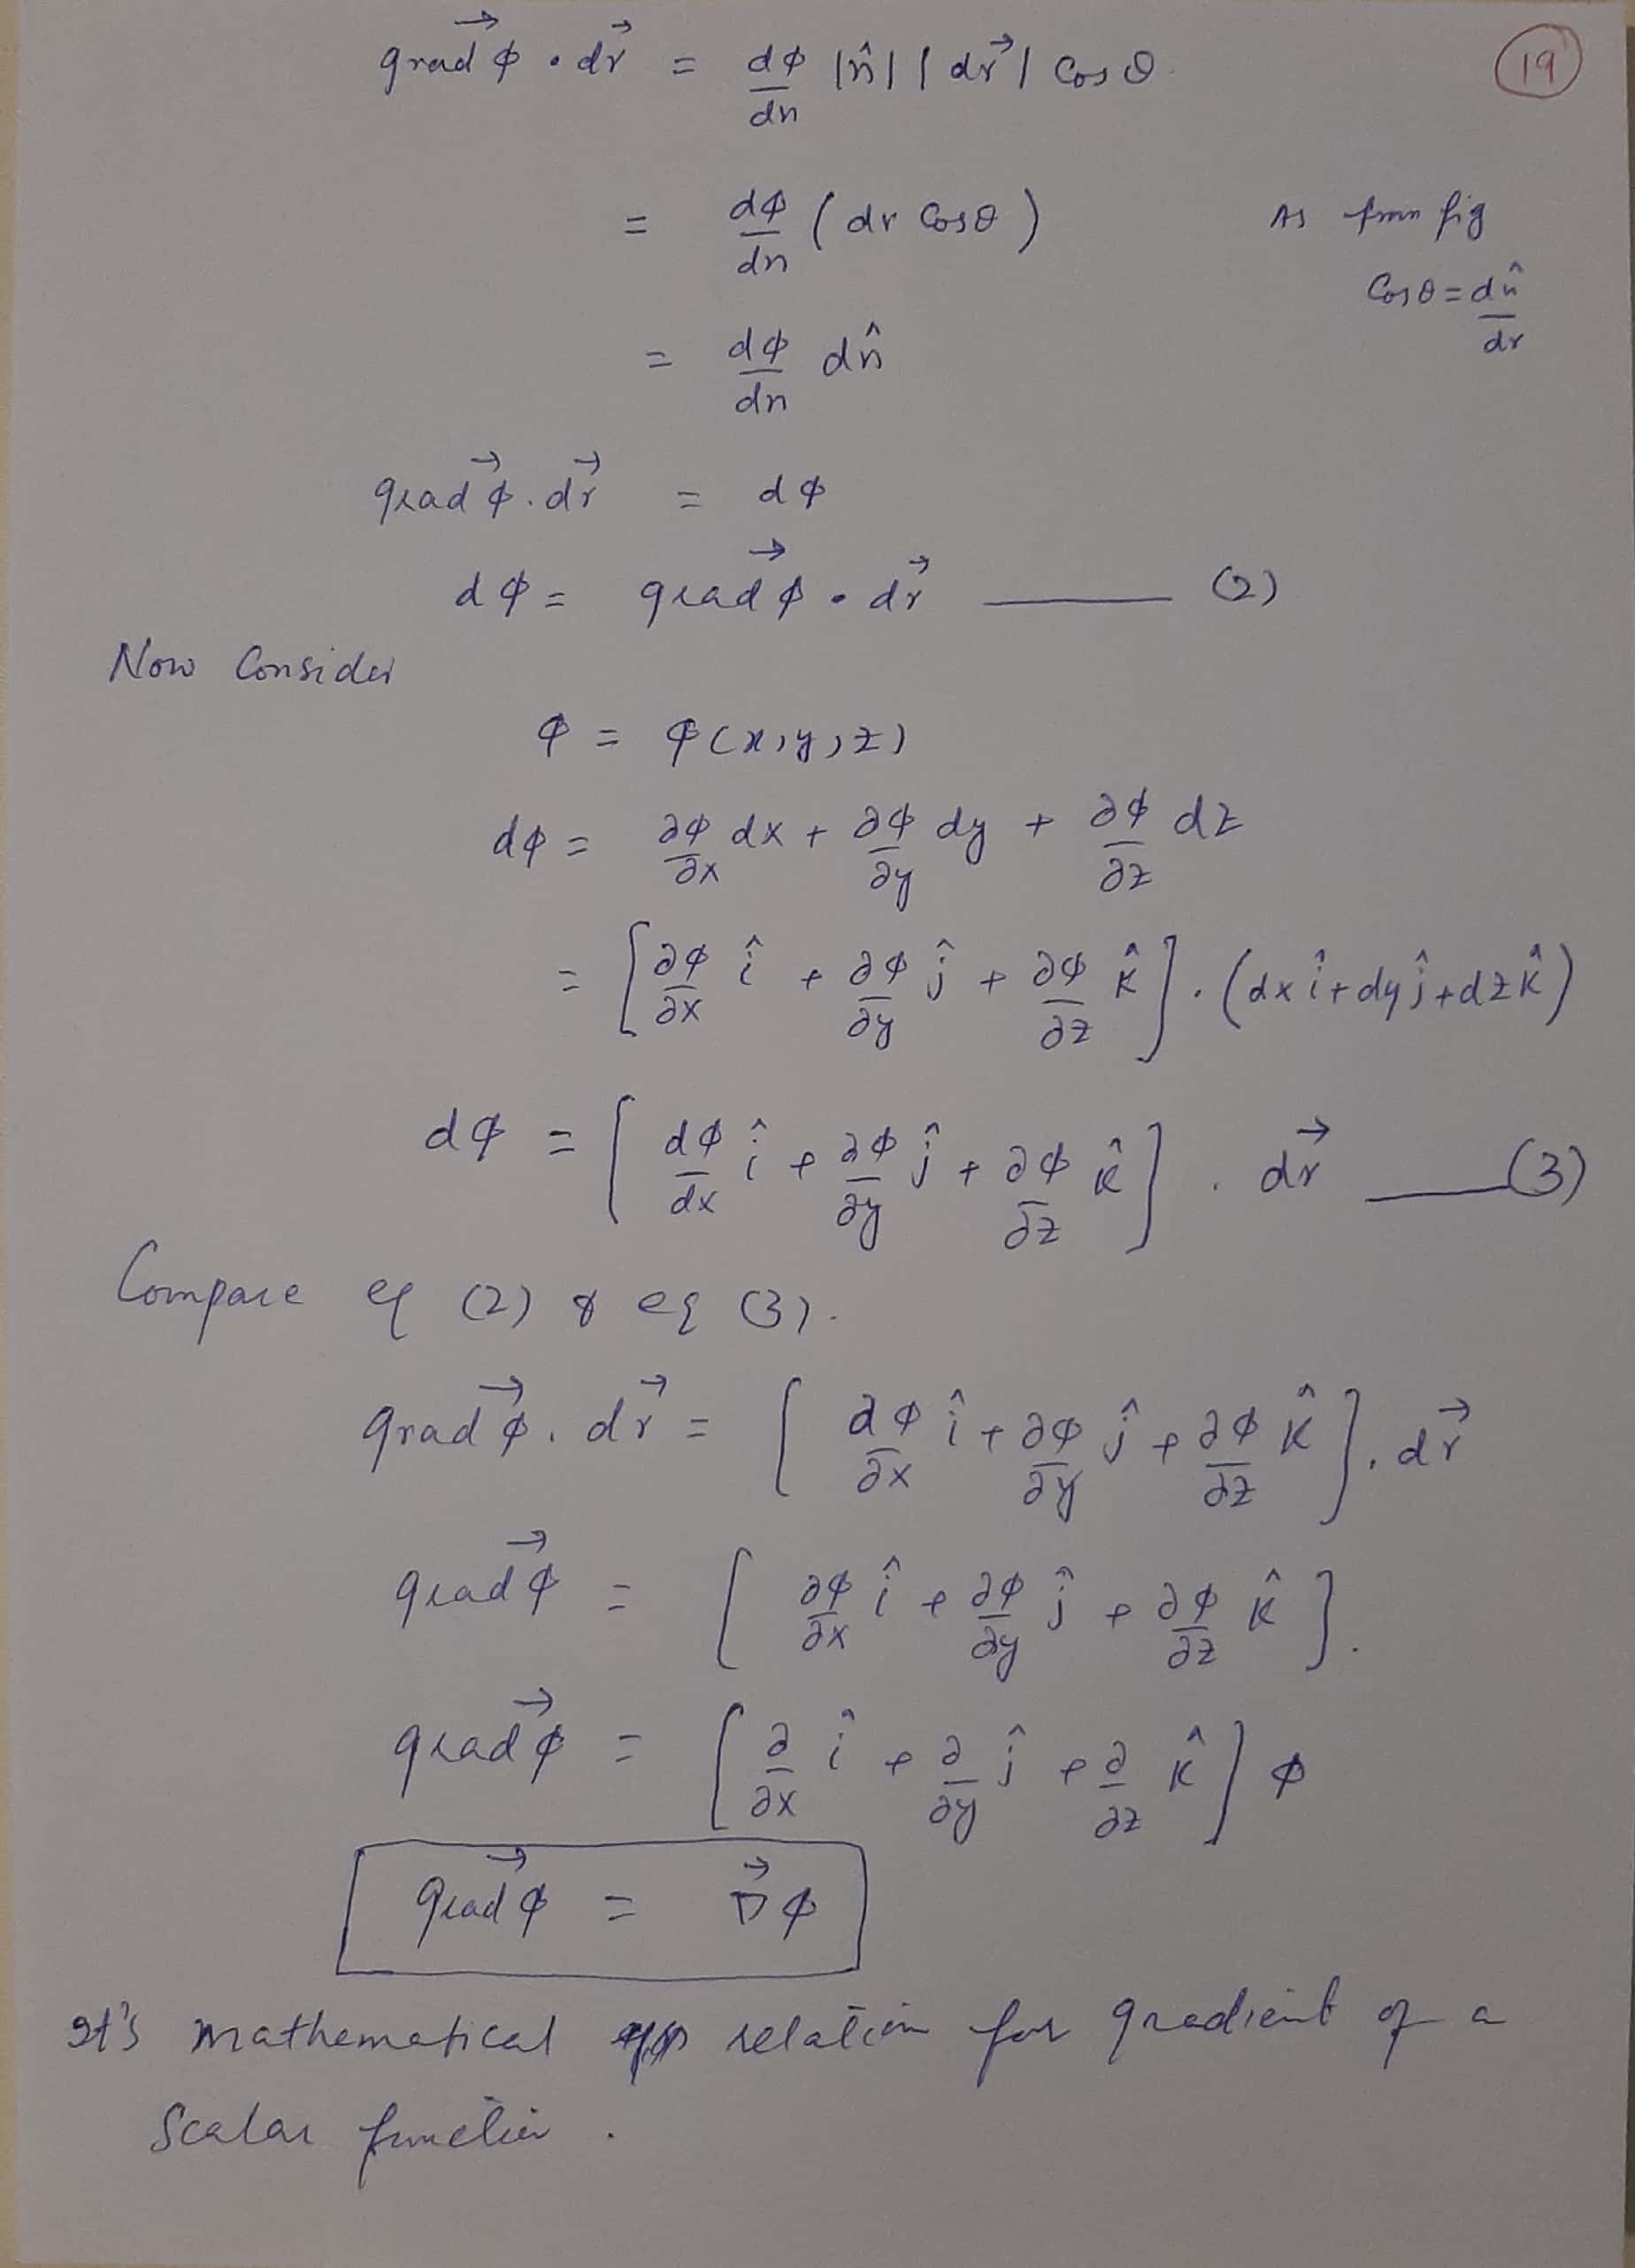 grad→ϕ . dr→ = dϕ/dn |n̂| |dr→| Cosθ
19
= dϕ/dn (dr Cosθ)
As from fig
Cosθ = dn̂/dr
= dϕ/dn dn̂
grad→ϕ . dr→ = dϕ
dϕ = grad→ϕ . dr→ ——— (2)
Now Consider
ϕ = ϕ(x,y,z)
dϕ = ∂ϕ/∂x dx + ∂ϕ/∂y dy + ∂ϕ/∂z dz
= [∂ϕ/∂x î + ∂ϕ/∂y ĵ + ∂ϕ/∂z k̂] . (dx î + dy ĵ + dz k̂)
dϕ = [dϕ/dx î + ∂ϕ/∂y ĵ + ∂ϕ/∂z k̂] . dr→ ——— (3)
Compare eq (2) & eq (3).
grad→ϕ . dr→ = [∂ϕ/∂x î + ∂ϕ/∂y ĵ + ∂ϕ/∂z k̂] . dr→
grad→ϕ = [∂ϕ/∂x î + ∂ϕ/∂y ĵ + ∂ϕ/∂z k̂].
grad→ϕ = [∂/∂x î + ∂/∂y ĵ + ∂/∂z k̂] ϕ
grad→ϕ = ∇→ϕ
It's mathematical relation for gradient of a
Scalar function .